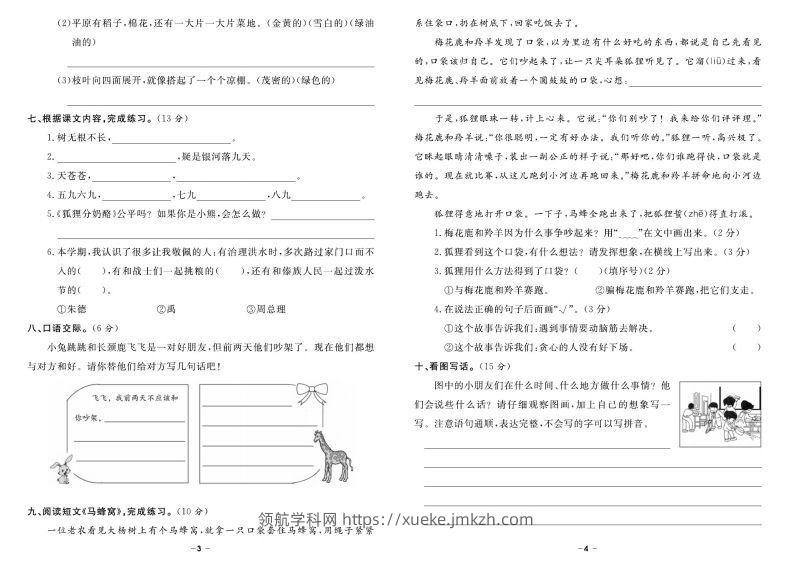 (2)平原有稻子,棉花,还有一大片一大片菜地。(金黄的)(雪白的)(绿油
油的)
(3)枝叶向四面展开,就像搭起了一个个凉棚。(茂密的)(绿色的)
七、根据课文内容,完成练习。(13 分)
1. 树无根不长,____。
2. ____,疑是银河落九天。
3. 天苍苍,____,____。
4. 五九六九,____,七九____,八九____。
5.《狐狸分奶酪》公平吗？如果你是小熊,会怎么做？____
6. 本学期,我认识了很多让我敬佩的人:有治理洪水时,多次路过家门口而不
入的(　　),有和战士们一起挑粮的(　　),还有和傣族人民一起过泼水
节的(　　)。
①朱德　②禹　③周总理
八、口语交际。(6 分)
小兔跳跳和长颈鹿飞飞是一对好朋友,但前两天他们吵架了。现在他们都想
与对方和好。请你替他们给对方写几句话吧！
飞飞,我前两天不应该和
你吵架,____
九、阅读短文《马蜂窝》,完成练习。(10 分)
一位老农看见大杨树上有个马蜂窝,就拿一只口袋套住马蜂窝,用绳子紧紧
－3－
系住袋口,扔在树底下,回家吃饭去了。
梅花鹿和羚羊发现了口袋,以为里边有什么好吃的东西,都说是自己先看见
的,口袋该归自己。它们吵起来了,让一只尖耳朵狐狸听见了。它溜(liū)过来,看
见梅花鹿、羚羊面前放着一个圆鼓鼓的口袋,心想:____
于是,狐狸眼珠一转,计上心来。它说:“你们别吵了！我来给你们评评理。”
梅花鹿和羚羊说:“你很聪明,一定有好办法。我们听你的。”狐狸一听,高兴极了。
它眯起眼睛清清嗓子,装出一副公正的样子说:“那好吧,你们谁跑得快,口袋就是
谁的。现在就比赛,从这儿跑到小河边再跑回来。”梅花鹿和羚羊拼命地向小河边
跑去。
狐狸得意地打开口袋。一下子,马蜂全跑出来了,把狐狸蜇(zhē)得直打滚。
1. 梅花鹿和羚羊因为什么事争吵起来？用“____”在文中画出来。(2 分)
2. 狐狸看到这个口袋,有什么想法？请发挥想象,在横线上写出来。(3 分)
3. 狐狸用什么方法得到了口袋？(　　)(填序号)(2 分)
①与梅花鹿和羚羊赛跑。　②骗梅花鹿和羚羊赛跑,把它们支走。
4. 在说法正确的句子后面画“√”。(3 分)
①这个故事告诉我们:遇到事情要动脑筋去解决。　(　　)
②这个故事告诉我们:贪心的人没有好下场。　(　　)
十、看图写话。(15 分)
图中的小朋友们在什么时间、什么地方做什么事情？他
们会说些什么话？请仔细观察图画,加上自己的想象写一
写。注意语句通顺,表达完整,不会写的字可以写拼音。
－4－
领航学科网 https://xueke.jmkzh.com